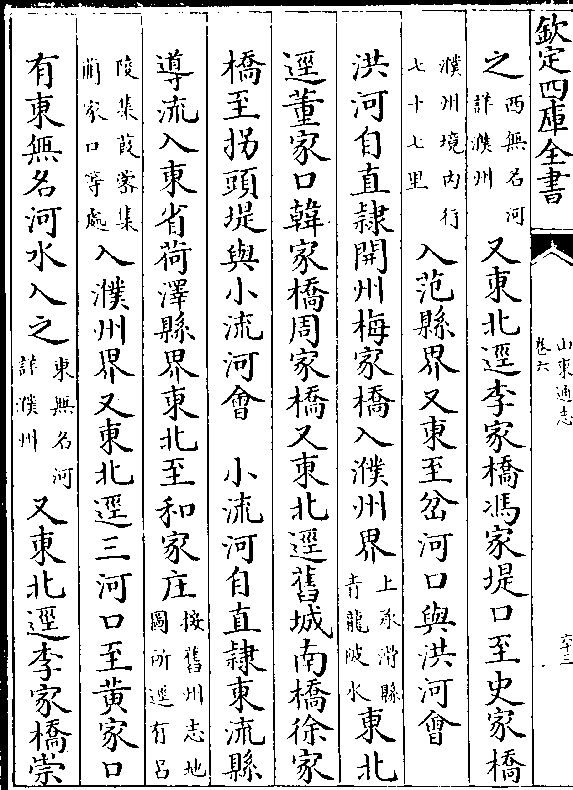 欽定四庫全書
山東通志
卷六
六十三
之西無名河詳濮州又東北逕李家橋馮家堤口至史家橋
濮州境內行七十七里入范縣界又東至岔河口與洪河會
洪河自直隸開州梅家橋入濮州界上承滑縣青龍陂水東北
逕董家口韓家橋周家橋又東北逕舊城南橋徐家
橋至拐頭堤與小流河會　小流河自直隸東流縣
導流入東省荷澤縣界東北至和家庄按舊州志地圖所逕有呂
陵集葭密集蕳家口等處入濮州界又東北逕三河口至黃家口
有東無名河水入之東無名河詳濮州又東北逕李家橋崇